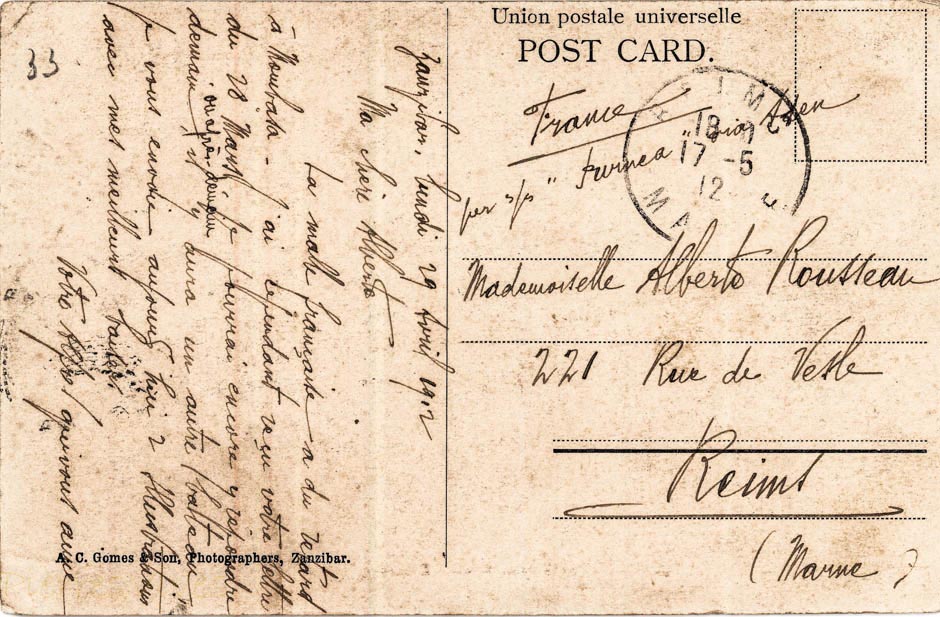 Union postale universelle
POST CARD.
33
France
per s/s "        " via Aden
REIMS
18
17 - 5
12
MARNE
Mademoiselle Alberte Rousseau
221 Rue de Vesle
Reims
(Marne)
Zanzibar, lundi 29 Avril 1912
Ma chère Alberte
La malle française a du retard
à Mombasa - J'ai cependant reçu votre lettre
du 28 Mars, je pourrai encore y répondre
demain, ou après-demain
et il y aura un autre bateau
Je vous envoie aujourd'hui 2 Illustrations
avec mes meilleurs baisers
Votre                 qui vous aime
A. C. Gomes & Son, Photographers, Zanzibar.